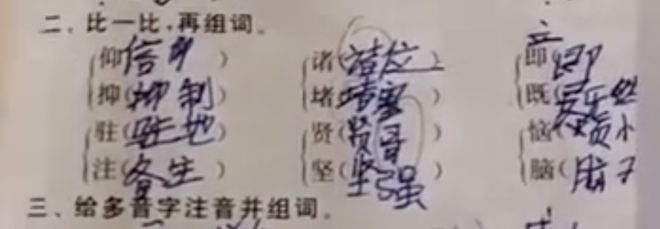 二、比一比,再组词。
仰(信仰) 诸(诸位) 即(立即)
抑(抑制) 堵(堵塞) 既(既然)
驻(驻地) 贤( ) 恼(烦恼)
注( ) 坚(坚强) 脑(脑子)
三、给多音字注音并组词。